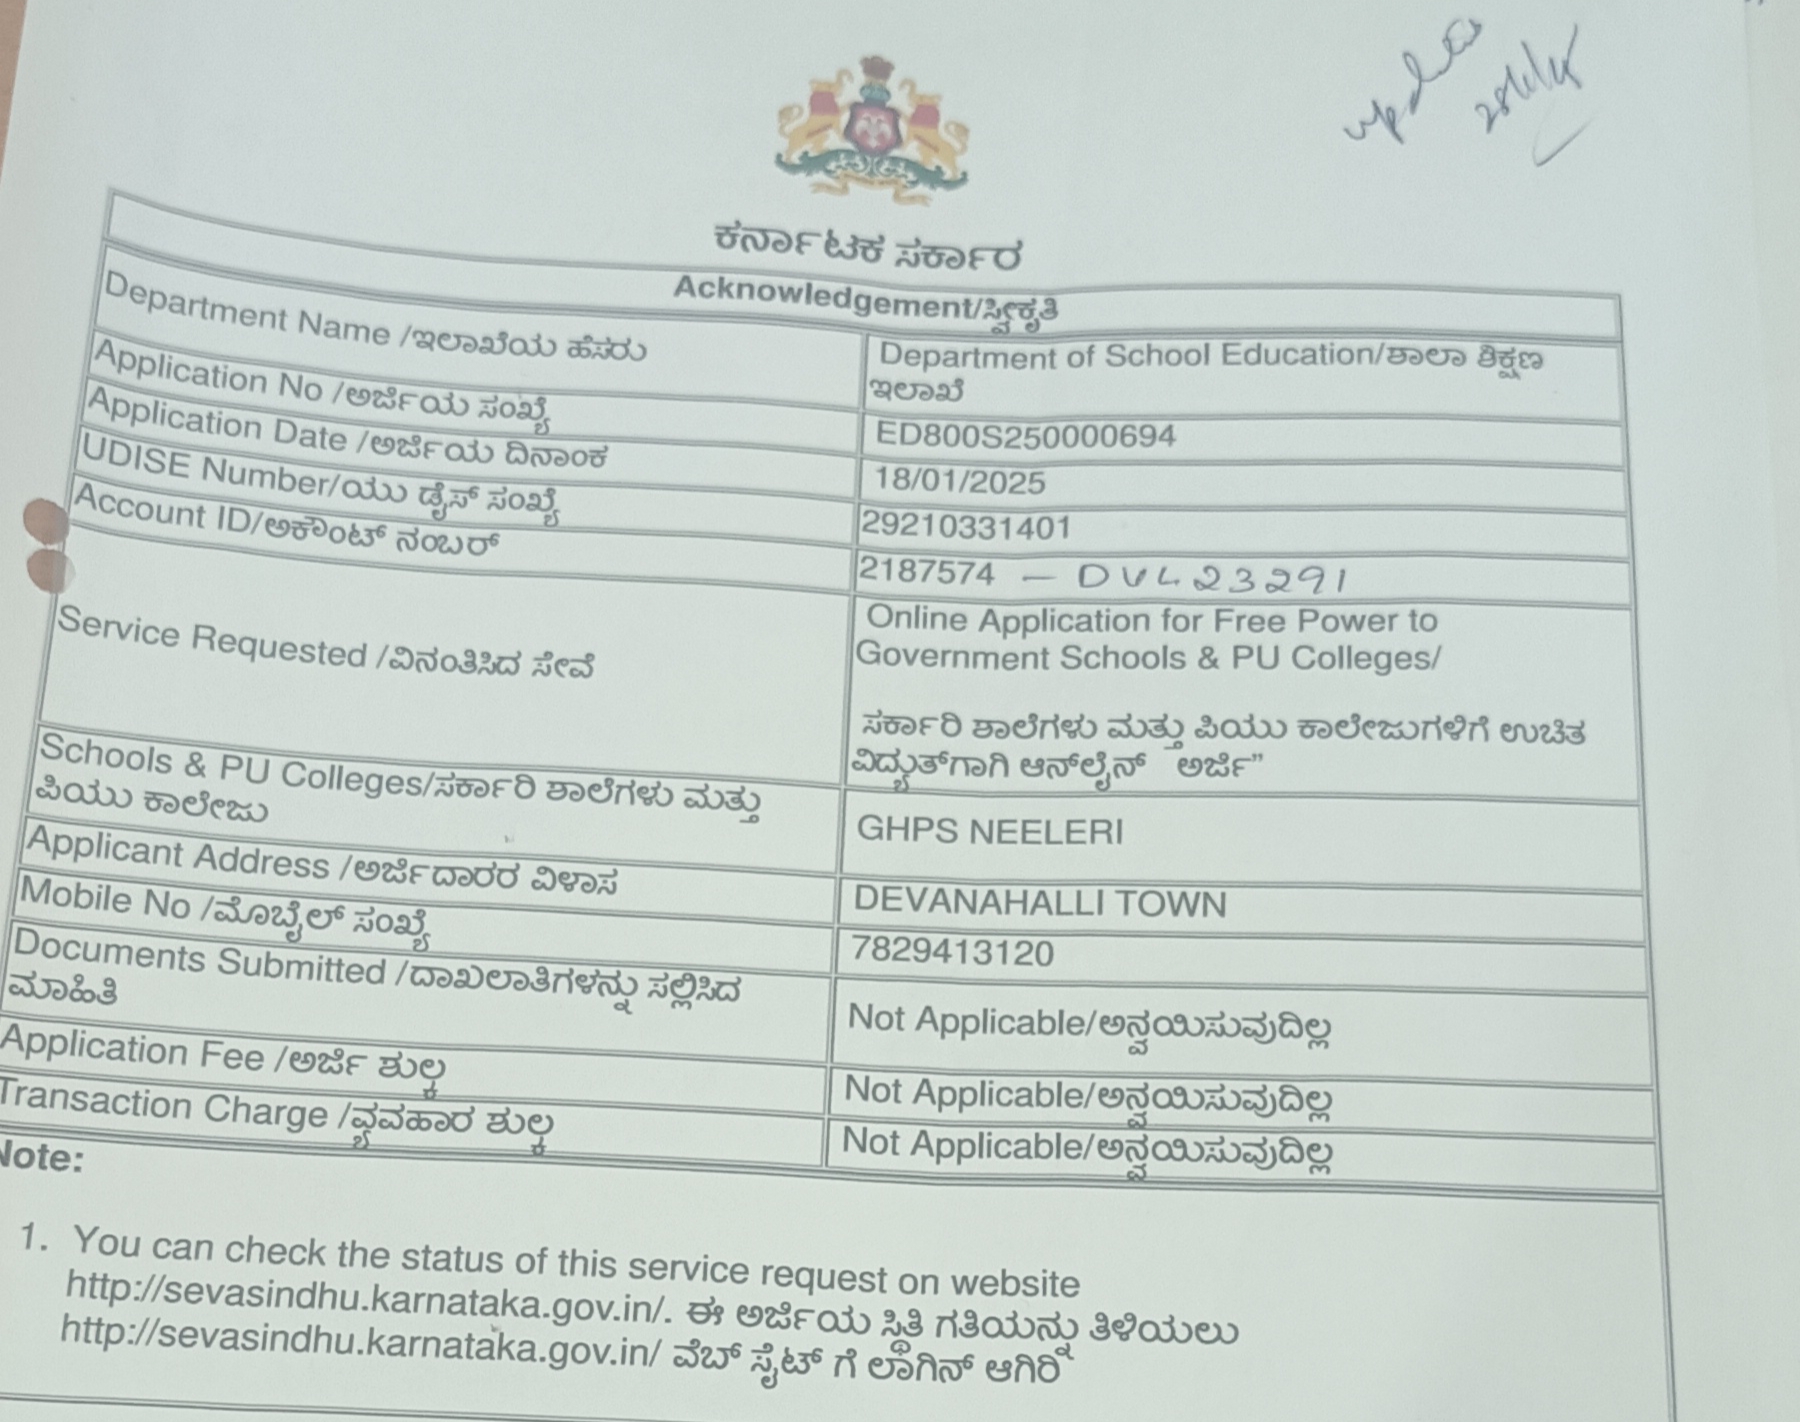 updated
ಕರ್ನಾಟಕ ಸರ್ಕಾರ
Acknowledgement/ಸ್ವೀಕೃತಿ
Department Name /ಇಲಾಖೆಯ ಹೆಸರು
Department of School Education/ಶಾಲಾ ಶಿಕ್ಷಣ
ಇಲಾಖೆ
Application No /ಅರ್ಜಿಯ ಸಂಖ್ಯೆ
ED800S250000694
Application Date /ಅರ್ಜಿಯ ದಿನಾಂಕ
18/01/2025
UDISE Number/ಯು ಡೈಸ್ ಸಂಖ್ಯೆ
29210331401
Account ID/ಅಕೌಂಟ್ ನಂಬರ್
2187574 – DVL23291
Service Requested /ವಿನಂತಿಸಿದ ಸೇವೆ
Online Application for Free Power to
Government Schools & PU Colleges/
ಸರ್ಕಾರಿ ಶಾಲೆಗಳು ಮತ್ತು ಪಿಯು ಕಾಲೇಜುಗಳಿಗೆ ಉಚಿತ
ವಿದ್ಯುತ್‌ಗಾಗಿ ಆನ್‌ಲೈನ್ ಅರ್ಜಿ”
Schools & PU Colleges/ಸರ್ಕಾರಿ ಶಾಲೆಗಳು ಮತ್ತು
ಪಿಯು ಕಾಲೇಜು
GHPS NEELERI
Applicant Address /ಅರ್ಜಿದಾರರ ವಿಳಾಸ
DEVANAHALLI TOWN
Mobile No /ಮೊಬೈಲ್ ಸಂಖ್ಯೆ
7829413120
Documents Submitted /ದಾಖಲಾತಿಗಳನ್ನು ಸಲ್ಲಿಸಿದ
ಮಾಹಿತಿ
Not Applicable/ಅನ್ವಯಿಸುವುದಿಲ್ಲ
Application Fee /ಅರ್ಜಿ ಶುಲ್ಕ
Not Applicable/ಅನ್ವಯಿಸುವುದಿಲ್ಲ
Transaction Charge /ವ್ಯವಹಾರ ಶುಲ್ಕ
Not Applicable/ಅನ್ವಯಿಸುವುದಿಲ್ಲ
Note:
1. You can check the status of this service request on website
http://sevasindhu.karnataka.gov.in/. ಈ ಅರ್ಜಿಯ ಸ್ಥಿತಿ ಗತಿಯನ್ನು ತಿಳಿಯಲು
http://sevasindhu.karnataka.gov.in/ ವೆಬ್ ಸೈಟ್ ಗೆ ಲಾಗಿನ್ ಆಗಿರಿ